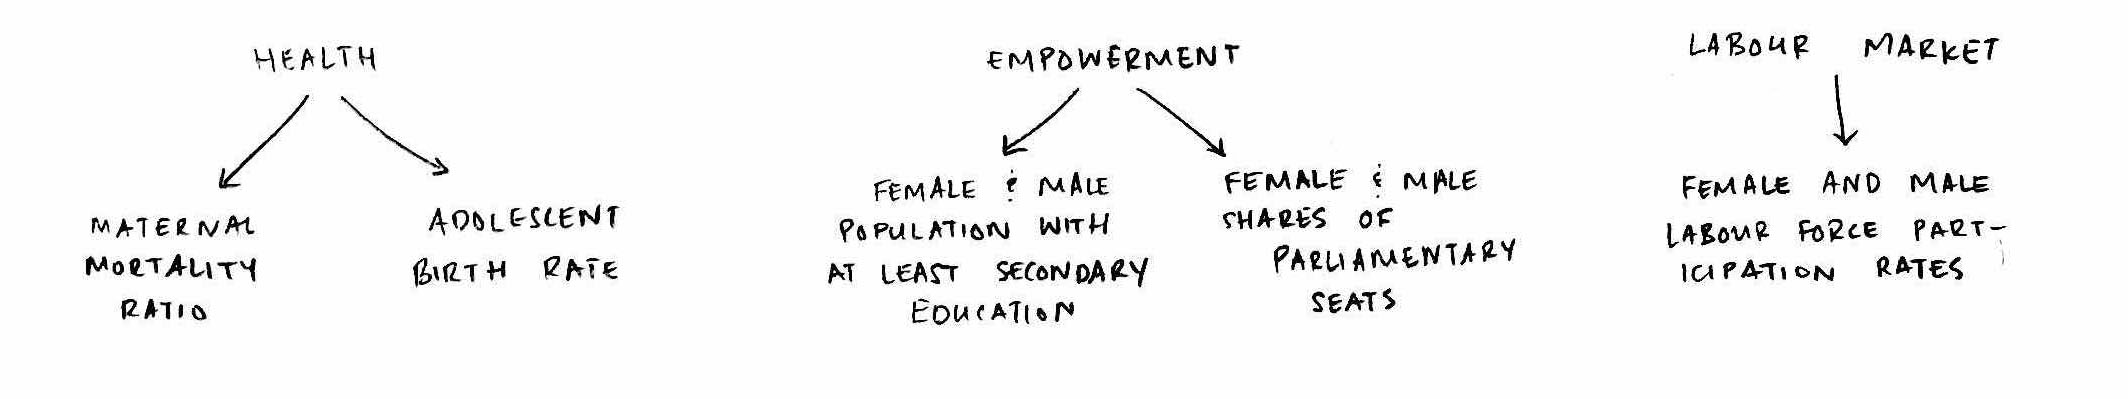 HEALTH
MATERNAL
MORTALITY
RATIO
ADOLESCENT
BIRTH RATE
EMPOWERMENT
FEMALE & MALE
POPULATION WITH
AT LEAST SECONDARY
EDUCATION
FEMALE & MALE
SHARES OF
PARLIAMENTARY
SEATS
LABOUR MARKET
FEMALE AND MALE
LABOUR FORCE PART-
ICIPATION RATES